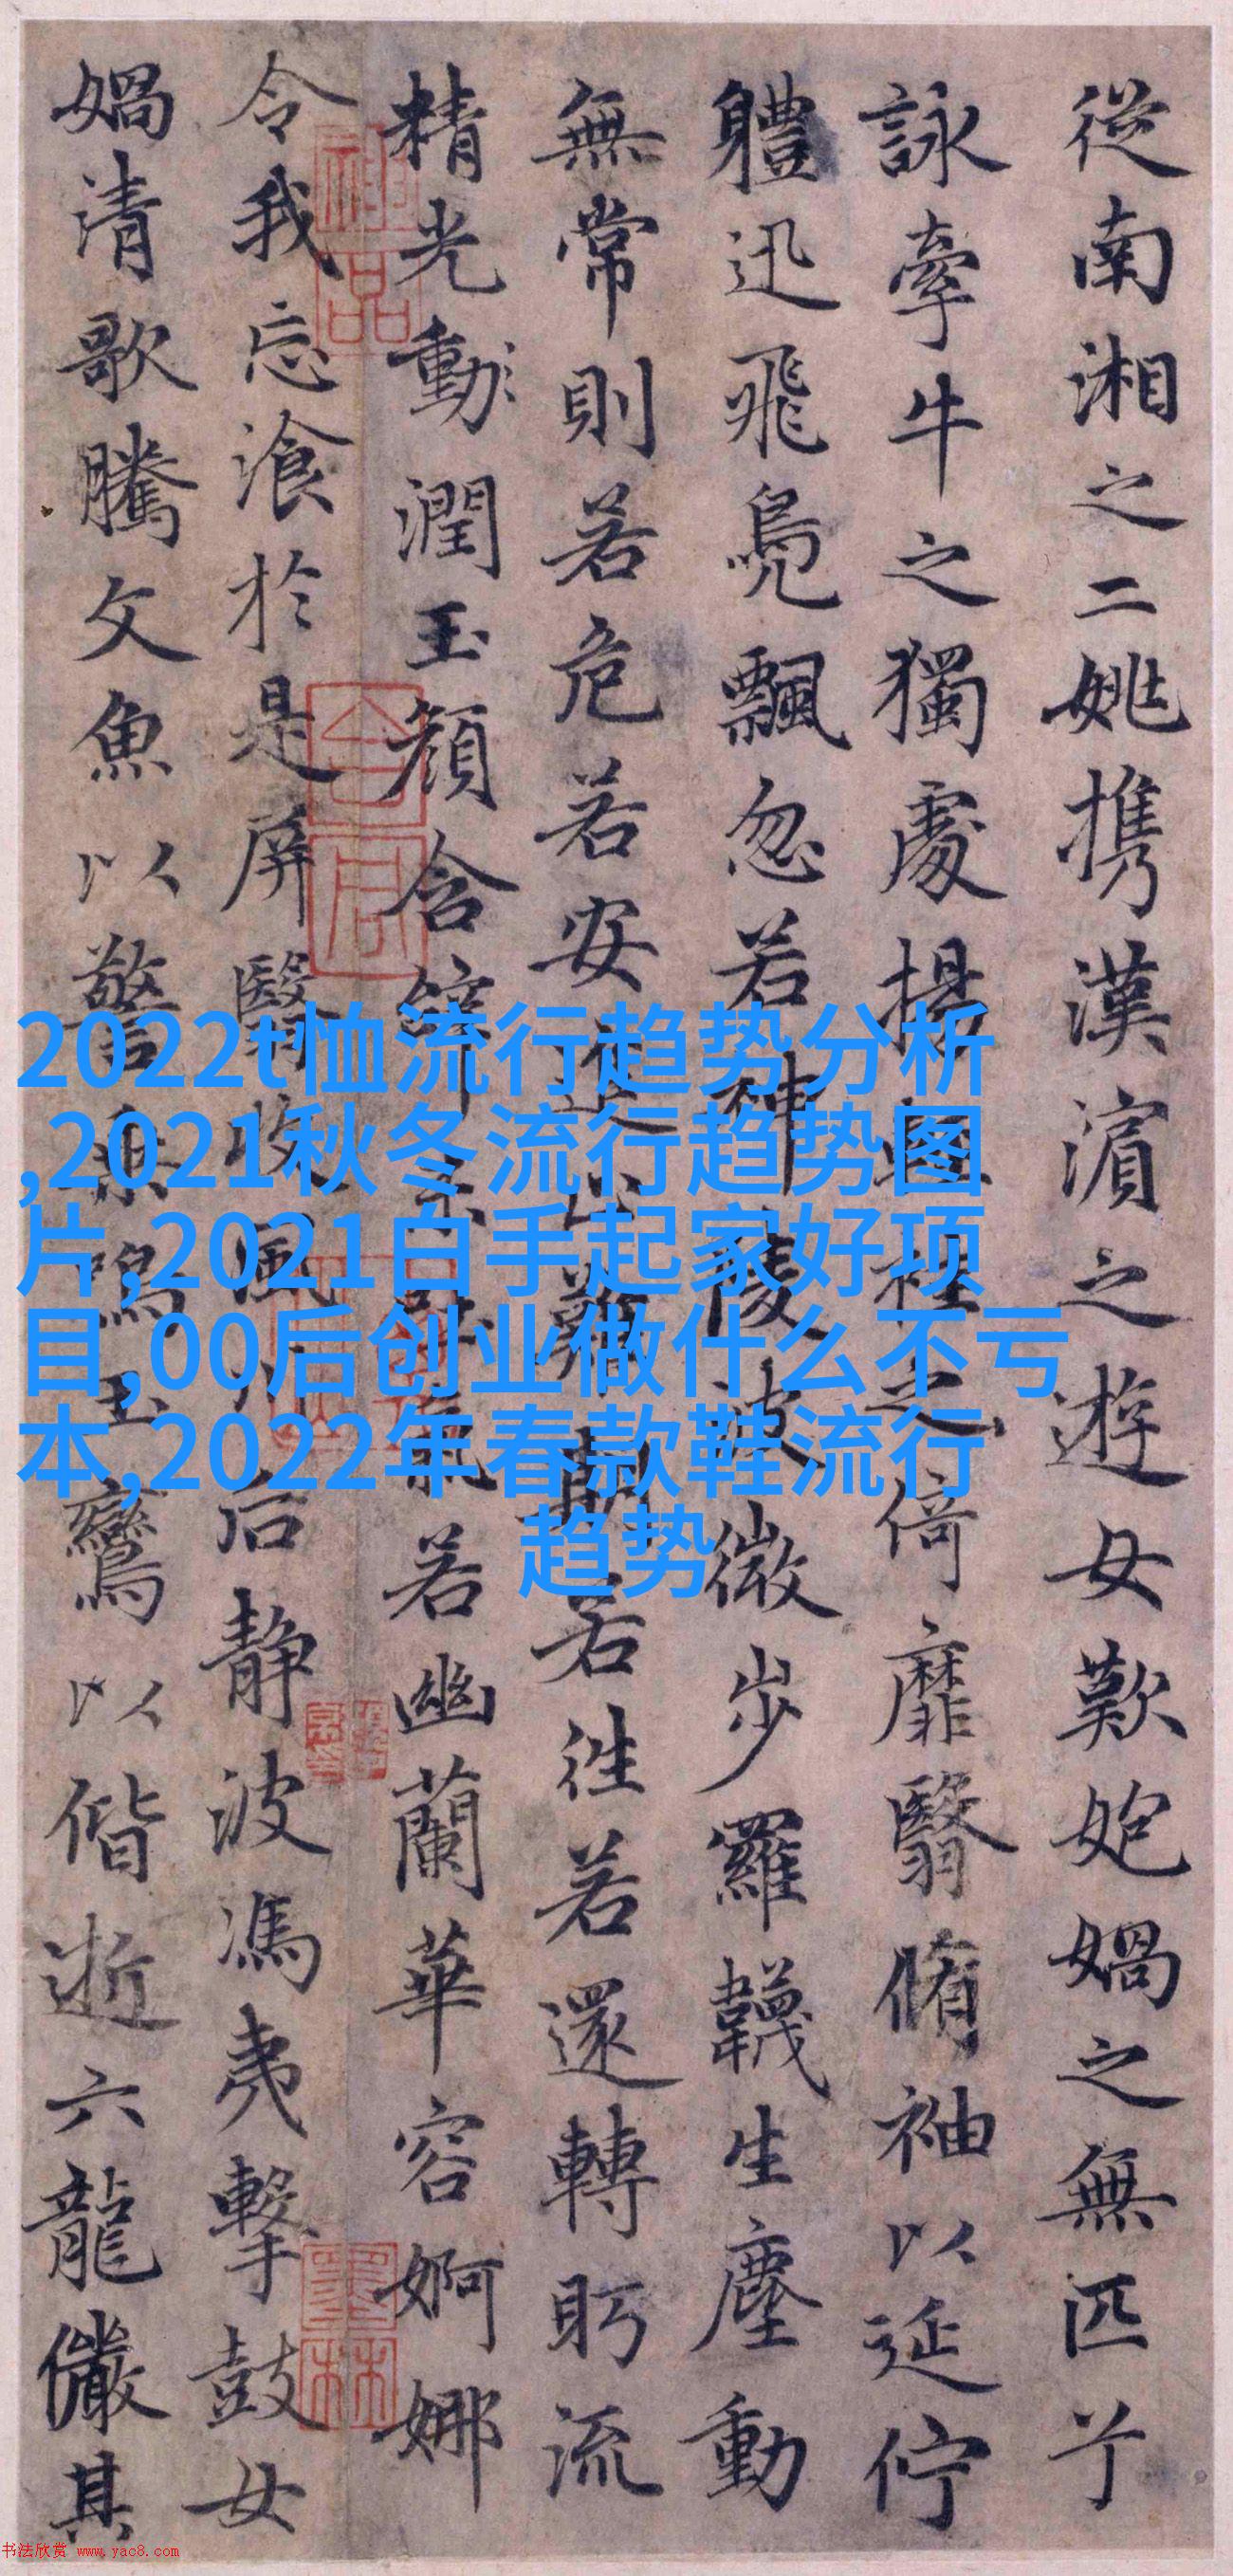 從南湘之二姚携漢濱之遊女歎媧之無匹兮
詠牽牛之獨處揚輕袿之倚靡翳脩袖以延佇
軆迅飛鳧飄忽若神陵波微步羅韈生塵動
無常則若危若安進止難期若往若還轉眄流
精光動潤玉顏含辭未吐氣若幽蘭華容婀娜
令我忘飡於是屏翳收風川后静波馮夷擊鼓女
媧清歌騰文魚以警乘鳴玉鸞以偕逝六龍儼其
神品
墨林
2022t恤流行趋势分析
,2021秋冬流行趋势图
片,2021白手起家好项
目,00后创业做什么不亏
本,2022年春款鞋流行
趋势
书法欣赏 www.yac8.com